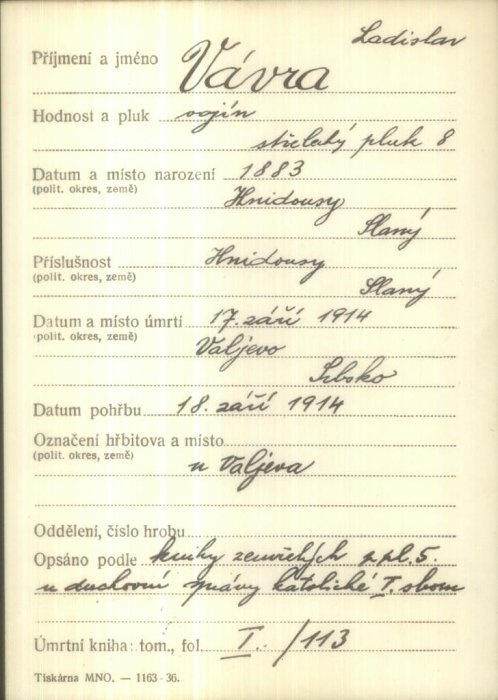 Ladislav
Příjmení a jméno Vávra
Hodnost a pluk vojín
střelecký pluk 8
Datum a místo narození 1883
(polit. okres, země) Hnidousy
Slaný
Příslušnost Hnidousy
(polit. okres, země) Slaný
Datum a místo úmrtí 17. září 1914
(polit. okres, země) Valjevo
Srbsko
Datum pohřbu 18. září 1914
Označení hřbitova a místo
(polit. okres, země) u Valjeva
Oddělení, číslo hrobu
Opsáno podle knihy zemřelých pl. 5.
u duchovní správy katolické I. sboru
Úmrtní kniha: tom., fol. I. /113
Tiskárna MNO. — 1163-36.